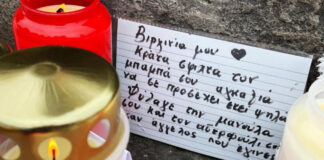 Βιργινία μου ♥
Κράτα σφιχτά τον
μπαμπά σου αγκαλιά
να σε προσέχει εκεί ψηλά
Φύλαγε την μανούλα
σου και τον αδερφούλη σου
σαν άγγελος που έγινες